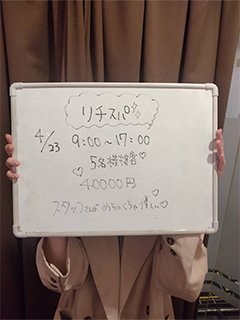 リチスパ
4/23 9:00~17:00
5名様接客♡
40000円♡
スタッフさんが めちゃくちゃ優しい♡